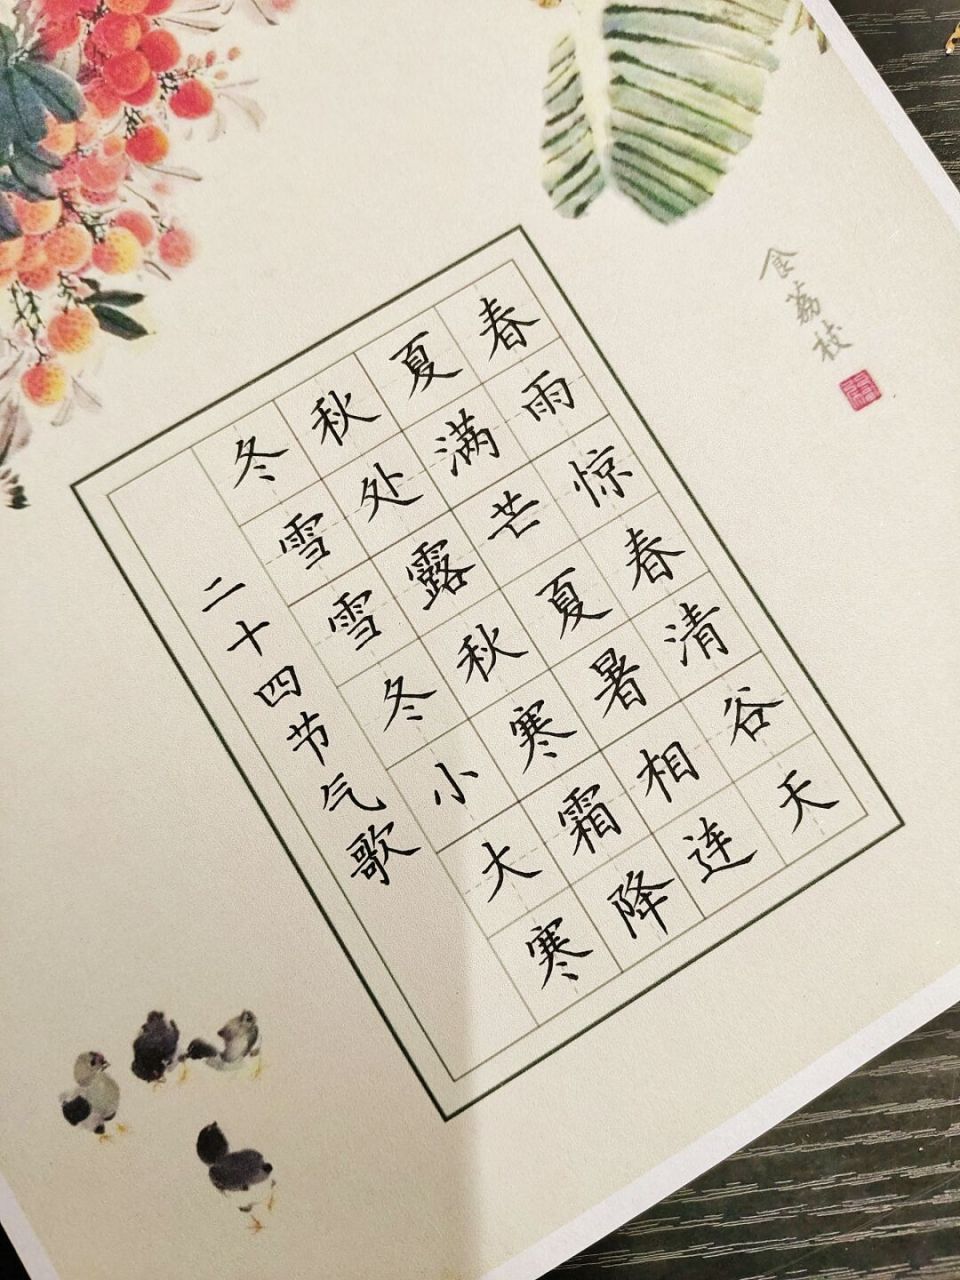 食荔枝
春雨惊春清谷天
夏满芒夏暑相连
秋处露秋寒霜降
冬雪雪冬小大寒
二十四节气歌